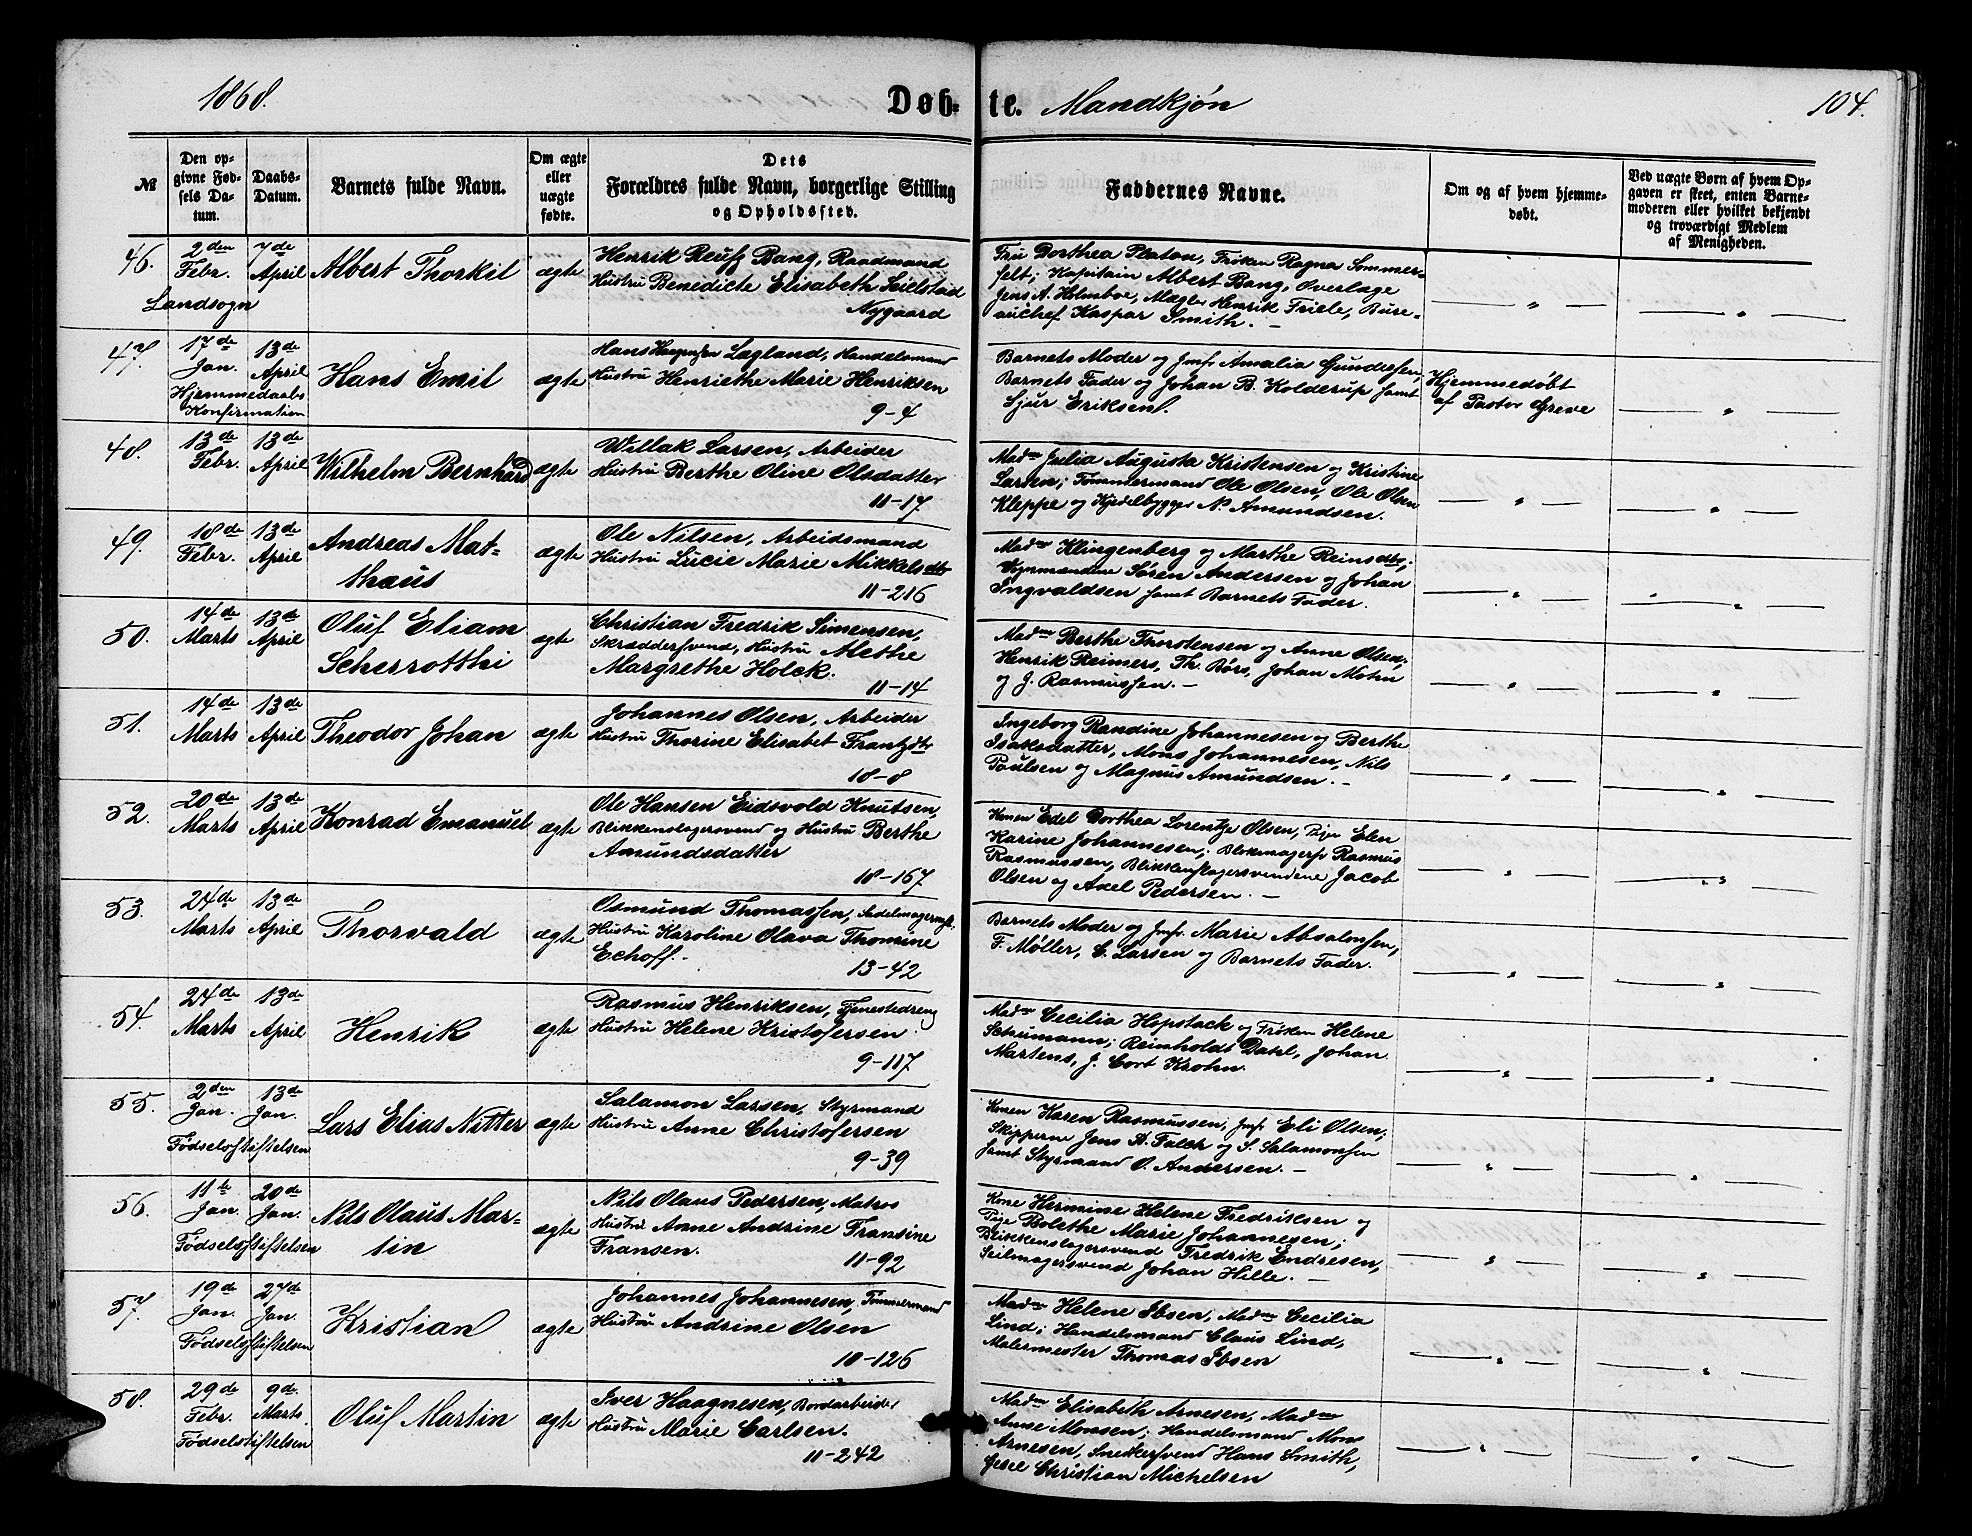 1868.
Døbte. Mandkjøn
104.
№
Den opgivne Fødsels Datum.
Daabs-Datum.
Barnets fulde Navn.
Om ægte eller uægte fødte.
Dets Forældres fulde Navn, borgerlige Stilling og Opholdssted.
Faddernes Navne.
Om og af hvem hjemmedøbt.
Ved uægte Børn af hvem Opgaven er skeet, enten Barnemoderen eller hvilket bekjendt og troværdigt Medlem af Menigheden.
46. 2den Febr. 7de April Albert Thorkil ægte
Landsogn
Henrik Reusz Bang, Raadmand
Hustru Benedicte Elisabeth Seielstad
Nygaard
Fru Dorthea Platou, Frøken Ragna Sommer-
felt; Kapitain Albert Bang, Overlæge
Jens A. Holmboe, Mægler Henrik Friele, Bure-
auchef Kaspar Smith. —
47. 17de Jan. 13de April Hans Emil ægte
Hjemmedaabs
Konfirmation
Hans Lægland, Handelsmand
Hustru Henriethe Marie Henriksen
9-4
Barnets Moder og Jmfr Amalia Gundersen,
Barnets Fader og Johan B. Kolderup samt
Sjur Eriksen.
Hjemmedøbt
af Pastor Greve
48. 13de Febr. 13de April Wilhelm Bernhard ægte
Willak Larsen, Arbeider
Hustru Berthe Oline Olsdatter
11-17
Madme Julia Augusta Kristensen og Kristine
Larsen; Tømmermand Ole Olsen, Ole Olsen
Kleppe og Kjedelbygger N. Amundsen.
49. 18de Febr. 13de April Andreas Mat-
thæus ægte
Ole Nilsen, Arbeidsmand
Hustru Lucie Marie Mikkelsdtr
11-216
Madme Klingenberg og Marthe Reinsdtr;
Søren Andersen og Johan
Ingvaldsen samt Barnets Fader.
50. 14de Marts 13de April Oluf Eliam
Scherrotthi ægte
Christian Fredrik Simensen,
Skræddersvend, Hustru Methe
Margrethe Holck.
11-14
Madme Berthe Thorstensen og Anne Olsen;
Henrik Reimers, Th. Børs, Johan Mohn
og J. Rasmussen. —
51. 14de Marts 13de April Theodor Johan ægte
Johannes Olsen, Arbeider
Hustru Thorine Elisabet Frantzdtr
18-8
Ingeborg Randine Johannesen og Berthe
Isaksdatter, Mons Johannesen, Nils
Paulsen og Magnus Amundsen. —
52. 20de Marts 13de April Konrad Emanuel ægte
Ole Hansen Eidsvold Knutsen,
Blikkenslagersvend og Hustru Berthe
Amundsdatter
18-167
Konen Edel Dorthea Lorentze Olsen, Pige Elen
Karine Johannesen; Rasmus
Rasmussen, Blikkenslagersvendene Jacob
Olsen og Axel Pedersen. —
53. 24de Marts 13de April Thorvald ægte
Osmund Thomassen,
Hustru Karoline Olava Thomine
Echoff. —
13-42
Barnets Moder og Jmfr. Marie Absalonsen,
F. Møller, C. Larsen og Barnets Fader.
54. 24de Marts 13de April Henrik ægte
Rasmus Henriksen, Tjenestedreng
Hustru Helene Kristofersen
9-117
Madme Cecilia Hopstock og Frøken Helene
Schumann; Reinholdt Dahl, Johan
Martens, J. Cort Krohn.
55. 2den Jan. 13de Jan. Lars Elias Nitter ægte
Fødselsstiftelsen
Salamon Larsen, Styrmand
Hustru Anne Christofersen
9-39
Konen Karen Rasmussen, Jmfr Eli Olsen;
Skipperne Jens A. Falck og S. Salamonsen
samt Styrmand O. Andersen. —
56. 11te Jan. 20de Jan. Nils Olaus Mar-
tin ægte
Fødselsstiftelsen
Nils Olaus Pedersen, Matros
Hustru Anne Andrine Fransine
Fransen.
11-92
Kone Hermine Helene Fredriksen og
Pige Bolethe Marie Johannesen;
Blikkenslagersvend Fredrik Endresen,
Seilmagersvend Johan Hille. —
57. 19de Jan. 27de Jan. Kristian ægte
Fødselsstiftelsen
Johannes Johannesen, Tømmermand
Hustru Andrine Olsen
10-126
Madme Helene Ibsen, Madme Cecilia
Lind; Handelsmand Claus Lind,
Malermester Thomas Ibsen
58. 29de Febr. 9de Marts Oluf Martin ægte
Fødselsstiftelsen
Iver Haagnesen, Bordarbeider
Hustru Marie Carlsen.
11-242
Madme Elisabeth Arnesen, Madme
Anne Monsen; Handelsmand Mons
Arnesen, Snedkersvend Hans Smith,
Christian Michelsen